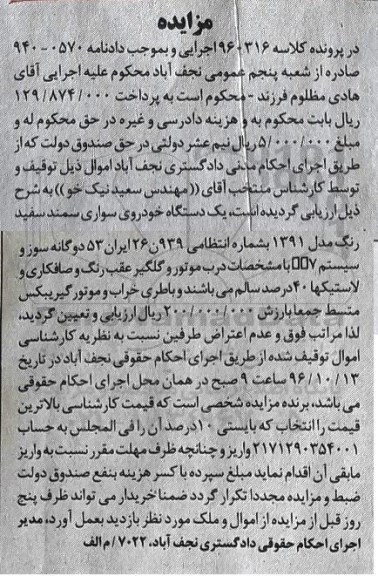 مزایده
در پرونده کلاسه ۹۶۰۳۱۶ اجرایی و بموجب دادنامه ۰۵۷۰ - ۹۴۰
صادره از شعبه پنجم عمومی نجف آباد محکوم علیه اجرایی آقای
هادی مظلوم فرزند - محکوم است به پرداخت ۱۲۹/۸۷۴/۰۰۰
ریال بابت محکوم به و هزینه دادرسی و غیره در حق محکوم له و
مبلغ ۵/۰۰۰/۰۰۰ ریال نیم عشر دولتی در حق صندوق دولت که از
طریق اجرای احکام مدنی دادگستری نجف آباد اموال ذیل توقیف و
توسط کارشناس منتخب آقای ((مهندس سعید نیک خو)) به شرح
ذیل ارزیابی گردیده است، یک دستگاه خودروی سواری سمند سفید
رنگ مدل ۱۳۹۱ بشماره انتظامی ۹۳۹ن۲۶ ایران ۵۳ دوگانه سوز و
سیستم ۷□□ با مشخصات درب موتور و گلگیر عقب رنگ و صافکاری و
لاستیکها ۴۰درصد سالم می باشند و باطری خراب و موتور گیربکس
متسط جمعا باارزش ۲۰۰/۰۰۰/۰۰۰ ریال ارزیابی و تعیین گردید،
لذا مراتب فوق و عدم اعتراض طرفین نسبت به نظریه کارشناسی
اموال توقیف شده از طریق اجرای احکام حقوقی نجف آباد در تاریخ
۹۶/۱۰/۱۳ ساعت ۹ صبح در همان محل اجرای احکام حقوقی
می باشد، برنده مزایده شخصی است که قیمت کارشناسی بالاترین
قیمت را انتخاب که بایستی ۱۰درصد آن را فی المجلس به حساب
۲۱۷۱۲۹۰۳۵۴۰۰۱ واریز و چنانچه ظرف مهلت مقرر نسبت به واریز
مابقی آن اقدام نماید مبلغ سپرده با کسر هزینه بنفع صندوق دولت
ضبط و مزایده مجددا تکرار گردد ضمنا خریدار می تواند ظرف پنج
روز قبل از مزایده از اموال و ملک مورد نظر بازدید بعمل آورد، مدیر
اجرای احکام حقوقی دادگستری نجف آباد، ۷۰۲۲/م الف